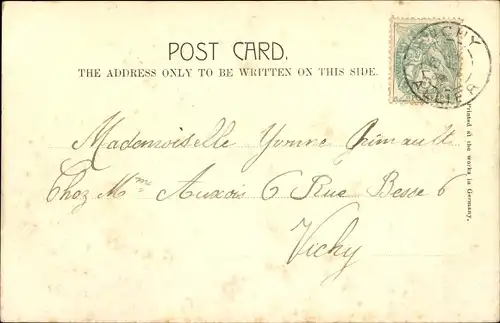 POST CARD.
THE ADDRESS ONLY TO BE WRITTEN ON THIS SIDE.
VICHY
ALLIER
Mademoiselle Yvonne Grimault
Chez Mme Auxois 6 Rue Besse 6
Vichy
Printed at the works in Germany.